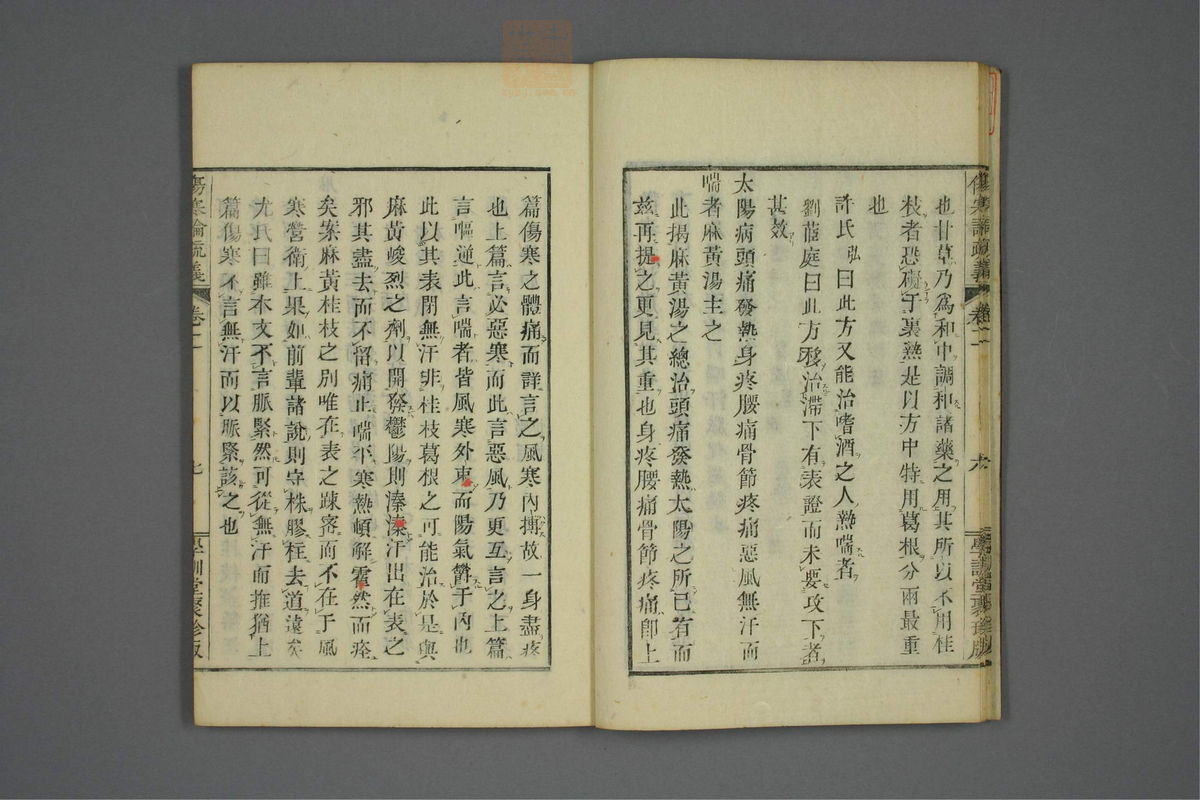 也甘草乃爲和中調和諸藥之用其所以不用桂
枝者恐礙于裏熱是以方中特用葛根分兩最重
也
許氏弘曰此方又能治嗜酒之人熱喘者
劉茝庭曰此方移治滯下有表證而未要攻下者
甚效
太陽病頭痛發熱身疼腰痛骨節疼痛惡風無汗而
喘者麻黃湯主之
此揭麻黃湯之總治頭痛發熱太陽之所已有而
茲再提之更見其重也身疼腰痛骨節疼痛卽上
篇傷寒之體痛而詳言之風寒內摶故一身盡疼
也上篇言必惡寒而此言惡風乃更互言之上篇
言嘔逆此言喘者皆風寒外束而陽氣鬱于內也
此以其表閉無汗非桂枝葛根之可能治於是與
麻黃峻烈之劑以開發鬱陽則溱溱汗出在表之
邪其盡去而不留痛止喘平寒熱頓解霍然而痊
矣葢麻黃桂枝之別唯在表之疎密而不在于風
寒營衛上果如前輩諸說則守株膠柱去道遠矣
尤氏曰雖本文不言脈緊然可從無汗而推猶上
篇傷寒不言無汗而以脈緊該之也
傷寒論疏義
卷二
七
學訓堂聚珍版